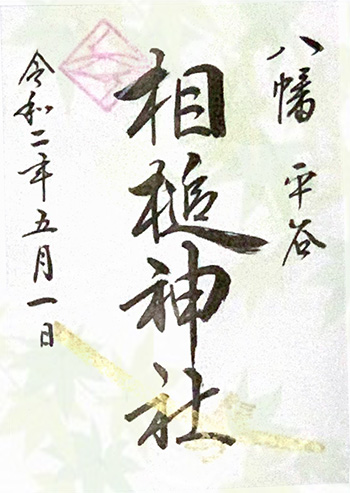 八幡 平谷
相槌神社
令和二年五月一日